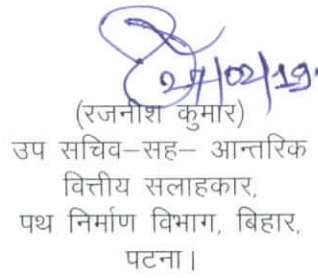 27/02/19
(रजनीश कुमार)
उप सचिव–सह– आन्तरिक
वित्तीय सलाहकार,
पथ निर्माण विभाग, बिहार,
पटना।